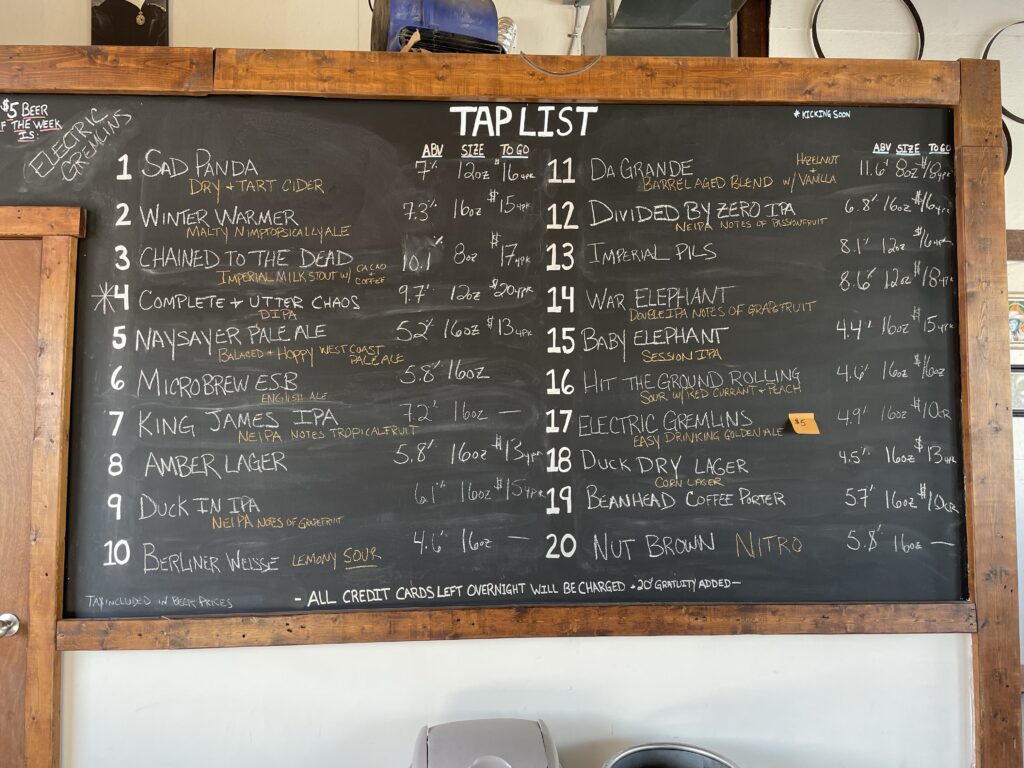 $5 BEER
OF THE WEEK
IS:
ELECTRIC
GREMLINS
TAP LIST
* KICKING SOON
ABV SIZE TO GO
1 SAD PANDA 7% 12oz $16 4PK
DRY + TART CIDER
2 WINTER WARMER 7.3% 16oz $15 4PK
MALTY NIMPTOPSICALLY ALE
3 CHAINED TO THE DEAD 10.1% 8oz $17 4PK
IMPERIAL MILK STOUT W/ CACAO + COFFEE
*4 COMPLETE + UTTER CHAOS 9.7% 12oz $20 4PK
DIPA
5 NAYSAYER PALE ALE 5.2% 16oz $13 4PK
BALACED + HOPPY WEST COAST
PALE ALE
6 MICROBREW ESB 5.8% 16oz
ENGLISH ALE
7 KING JAMES IPA 7.2% 16oz —
NEIPA NOTES TROPICALFRUIT
8 AMBER LAGER 5.8% 16oz $13 4PK
9 DUCK IN IPA 6.1% 16oz $15 4PK
NEIPA NOTES OF GRAPEFRUIT
10 BERLINER WEISSE LEMONY SOUR 4.6% 16oz —
ABV SIZE TO GO
11 DA GRANDE 11.6% 8oz $18 4PK
BARREL AGED BLEND W/ HAZELNUT + VANILLA
12 DIVIDED BY ZERO IPA 6.8% 16oz $16 4PK
NEIPA NOTES OF PASSIONFRUIT
13 IMPERIAL PILS 8.1% 12oz
14 WAR ELEPHANT 8.6% 12oz $18 4PK
DOUBLE IPA NOTES OF GRAPEFRUIT
15 BABY ELEPHANT 4.4% 16oz $15 4PK
SESSION IPA
16 HIT THE GROUND ROLLING 4.6% 16oz
SOUR W/ RED CURRANT + PEACH
17 ELECTRIC GREMLINS $5 4.9% 16oz $10
EASY DRINKING GOLDEN ALE
18 DUCK DRY LAGER 4.5% 16oz $13 4PK
CORN LAGER
19 BEANHEAD COFFEE PORTER 57% 16oz $10
20 NUT BROWN NITRO 5.8% 16oz —
TAX INCLUDED IN BEER PRICES
- ALL CREDIT CARDS LEFT OVERNIGHT WILL BE CHARGED + 20% GRATUITY ADDED —